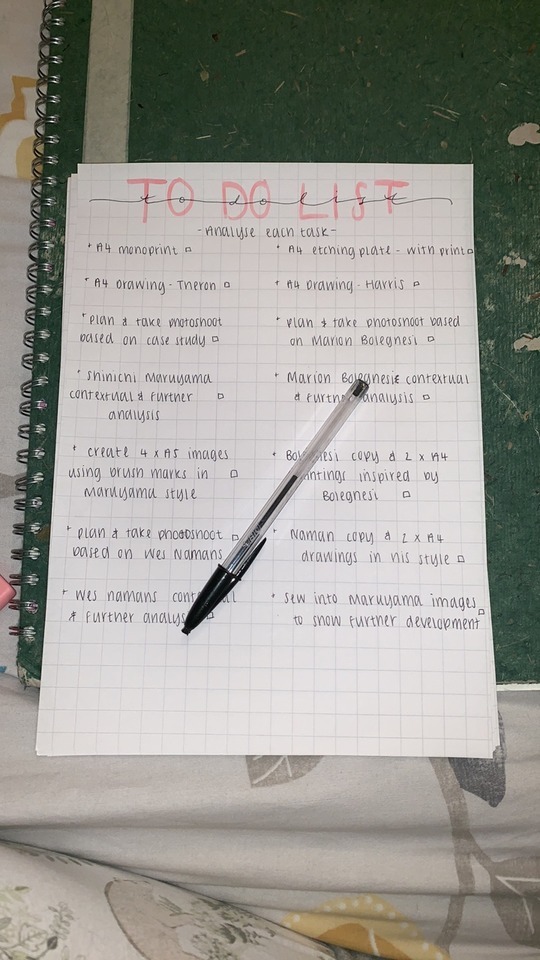 TO DO LIST
to do list
-Analyse each task-
* A4 monoprint □
* A4 drawing - Theron □
* plan & take photoshoot
based on case study □
* Shinichi Maruyama
contextual & further □
analysis
* create 4 x A5 images
using brush marks in □
Maruyama style
* plan & take photoshoot □
based on Wes Namans
* Wes namans
& further □
* A4 etching plate - with print □
* A4 drawing - Harris □
* plan & take photoshoot based
on Marion Bolegnesi □
* Marion contextual
& analysis □
* copy & 2 x A4
inspired by
Bolegnesi □
* Naman copy & 2 x A4
drawings in his style □
* sew into Maruyama images □
to show further development